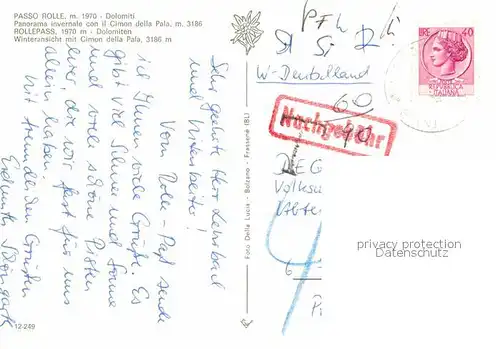 PASSO ROLLE, m. 1970 - Dolomiti
Panorama invernale con il Cimon della Pala, m. 3186
ROLLEPASS, 1970 m - Dolomiten
Winteransicht mit Cimon della Pala, 3186 m
Sehr geehrte Herr
und Mitarbeiter!
Vom Rolle-Paß sende
ich Ihnen viele Grüße. Es
gibt viel Schnee und Sonne
und viele schöne Pisten
hier, die wir fast für uns
allein haben.
Mit freundlichen Grüßen
12-249
Foto Della Lucia - Bolzano - Frassenè (BL)
LIRE 40
REPVBBLICA
ITALIANA
W-Deutschland
60
Nachgebühr
40
DEG
Volks
Abte
6
privacy protection
Datenschutz